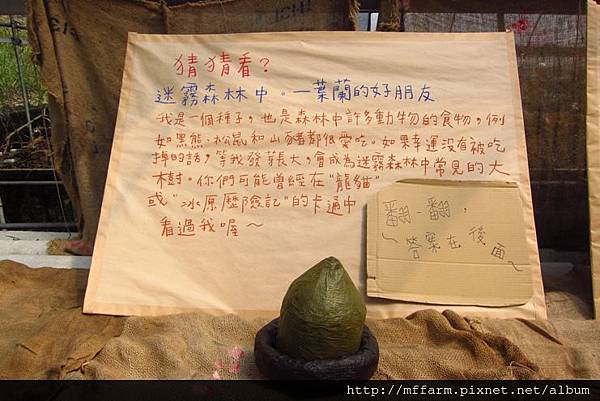 猜猜看?
迷霧森林中。一葉蘭的好朋友
我是一個種子，也是森林中許多動物的食物，例
如黑熊、松鼠和山豬都很愛吃。如果幸運沒有被吃
掉的話，等我發芽長大，會成為迷霧森林中常見的大
樹。你們可能曾經在"龍貓"
或"冰原歷險記"的卡通中
看過我喔～
翻一翻，
～答案在後面～
http://mffarm.pixnet.net/album